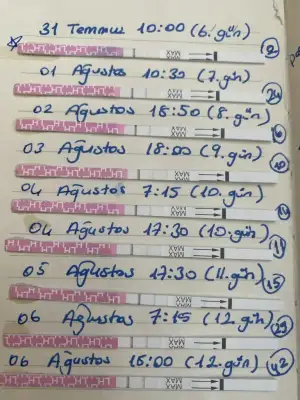 31 Temmuz 10:00 (6. gün)
MAX
01 Ağustos 10:30 (7. gün)
MAX
02 Ağustos 18:50 (8. gün)
MAX
03 Ağustos 18:00 (9. gün)
MAX
04 Ağustos 7:15 (10. gün)
MAX
04 Ağustos 17:30 (10. gün)
MAX
05 Ağustos 17:30 (11. gün)
MAX
06 Ağustos 7:15 (12. gün)
MAX
06 Ağustos 15:00 (12. gün)
MAX